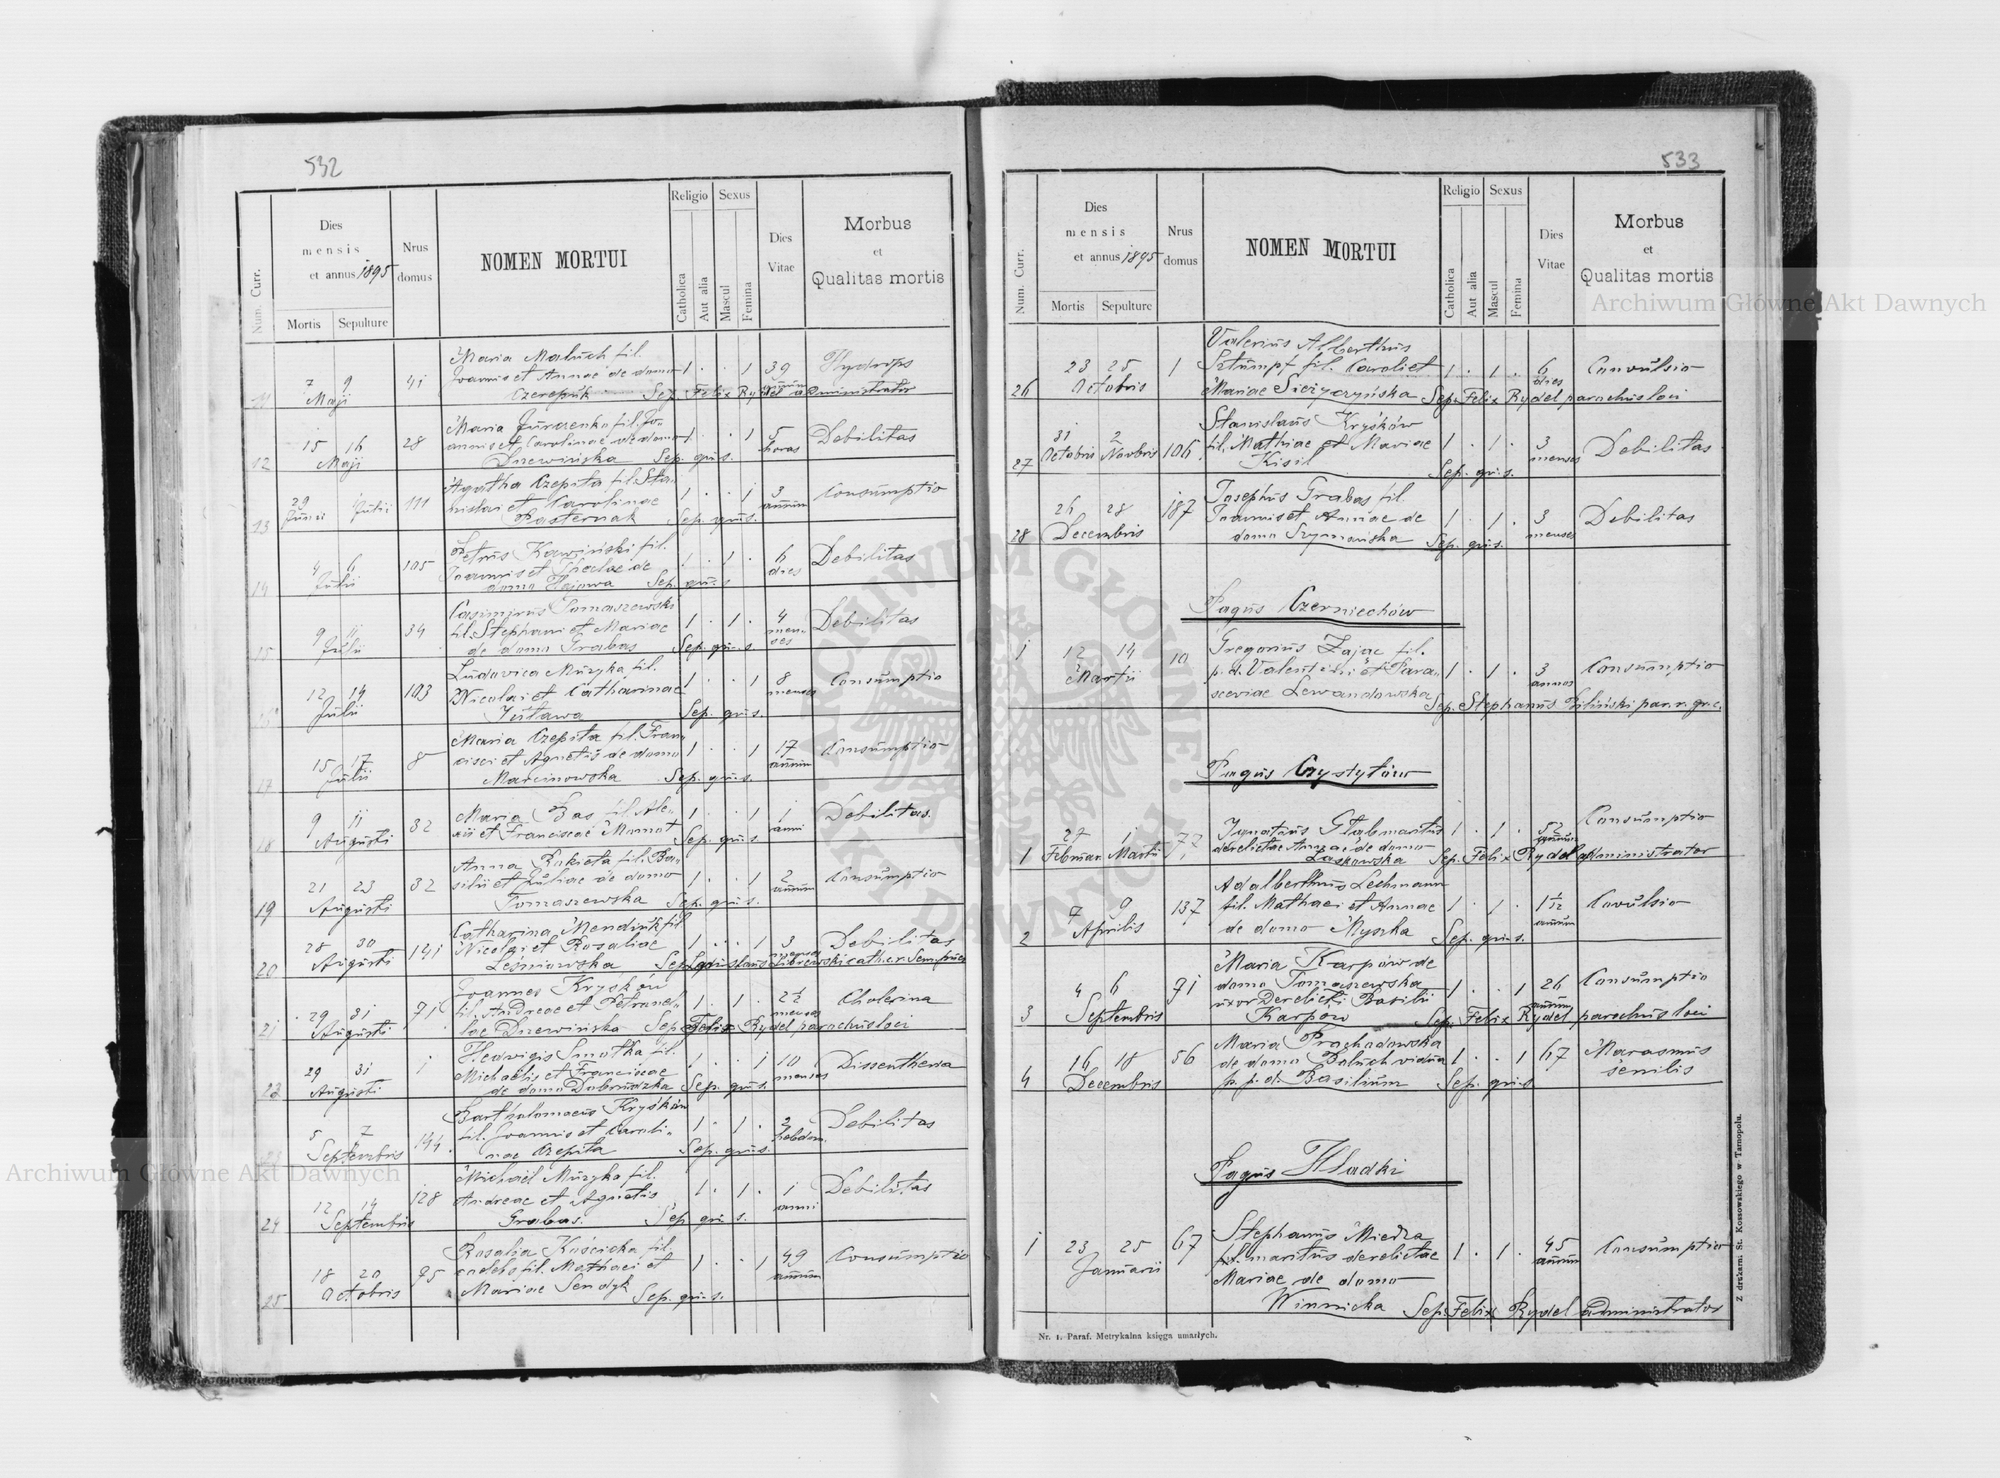 532
Dies
mensis
et annus 1895
Nrus
domus
NOMEN MORTUI
Religio
Sexus
Dies
Vitae
Morbus
et
Qualitas mortis
Num. Curr.
Mortis
Sepulture
Catholica
Aut alia
Mascul
Femina
11
7 9
Maji
41
Maria Maluch fil.
Joannis et Annae de domo
Czerepuk Sep. Felix Rydel administrator
1 . . 1
39
annum
Hydrops
12
15 16
Maji
28
Maria Jurczenko fil. Jo-
annis et Carolinae de domo
Dzewińska Sep. qui s.
1 . . 1
5
horas
Debilitas
13
29
Junii Julii
111
Agatha Czepita fil. Sta-
nislai et Carolinae
Pasternak Sep. qui s.
1 . . 1
3
annum
Consumptio
14
4 6
Julii
105
Petrus Kawiński fil.
Joannis et Theclae de
domo Hajowa Sep. qui s.
1 . 1 .
6
dies
Debilitas
15
9 11
Julii
34
Casimirus Tomaszewski
fil. Stephani et Mariae
de domo Grabas Sep. qui s.
1 . 1 .
4
men-
ses
Debilitas
16
12 14
Julii
103
Ludovica Muzyka fil.
Nicolai et Catharinae
Jutawa Sep. qui s.
1 . . 1
8
menses
Consumptio
17
15 17
Julii
8
Maria Czepita fil. Fran-
cisci et Agnetis de domo
Marcinowska Sep. qui s.
1 . . 1
17
annum
Consumptio
18
9 11
Augusti
32
Maria Bas fil. Ale-
xii et Franciscae Mamot
Sep. qui s.
1 . . 1
1
anni
Debilitas.
19
21 23
Augusti
32
Anna Rakieta fil. Ba-
silii et Juliae de domo
Tomaszewska Sep. qui s.
1 . . 1
2
annum
Consumptio
20
28 30
Augusti
141
Catharina Mendiuk fil
Nicolai et Rosaliae
Leśniowska Sep. Ladislaus
1 . . 1
3
menses
Debilitas
21
29 31
Augusti
71
Joannes Kryśków
fil. Andreae et Petronel-
lae Dzewińska Sep. Felix Rydel parochus loci
1 . 1 .
2 1/2
menses
Cholerina
22
29 31
Augusti
1
Hedvigis Smotka fil.
Michaelis et Franciscae
de domo Dobrudzka Sep. qui s.
1 . . 1
10
menses
Dissentheria
23
5 7
Septembris
144
Bartholomaeus Kryśków
fil. Joannis et Caroli-
nae Czepita Sep. qui s.
1 . 1 .
2
hebdom.
Debilitas
24
12 14
Septembris
128
Michael Muzyka fil.
Andreae et Agnetis
Grabas. Sep. qui s.
1 . 1 .
1
anni
Debilitas
25
18 20
Octobris
95
Rosalia Kościcka fil.
caelebs fil. Mathaei et
Mariae Sendyk Sep. qui s.
1 . . 1
49
annum
Consumptio
533
Dies
mensis
et annus 1895
Nrus
domus
NOMEN MORTUI
Religio
Sexus
Dies
Vitae
Morbus
et
Qualitas mortis
Num. Curr.
Mortis
Sepulture
Catholica
Aut alia
Mascul
Femina
26
23 25
Octobris
1
Valerius Alberthus
Sztumpf fil. Caroli et
Mariae Siczyczyńska Sep. Felix Rydel parochus loci
1 . 1 .
6
dies
Convulsio
27
31 2
Octobris Novbris
106
Stanislaus Kryśków
fil. Mathiae et Mariae
Kisil Sep. qui s.
1 . 1 .
3
menses
Debilitas
28
26 28
Decembris
187
Josephus Grabas fil.
Joannis et Annae de
domo Szymańska Sep. qui s.
1 . 1 .
3
menses
Debilitas
Pagus Czerniechów
1
12 14
Martii
10
Gregorius Zając fil.
p. d. Valentini et Para-
sceviae Lewandowska
Sep. Stephanus Biliński par. r. gr. c.
1 . 1 .
3
annos
Consumptio
Pagus Czystyłów
1
27 1
Februar. Martii
77
Ignatius Głąb maritus
derelictae Annae de domo
Laskowska Sep. Felix Rydel administrator
1 . 1 .
52
annum
Consumptio
2
7 9
Aprilis
137
Adalberthus Lechmann
fil. Mathaei et Annae
de domo Myszka Sep. qui s.
1 . 1 .
1 1/12
annum
Covulsio
3
4 6
Septembris
91
Maria Karpów de
domo Tomaszewska
uxor Derelicti Basilii
Karpow Sep. Felix Rydel parochus loci
1 . . 1
26
annum
Consumptio
4
16 18
Decembris
56
Maria Prachodowska
de domo Baluch vidua
p. p. d. Basilium Sep. qui s
1 . . 1
67
Marasmus
senilis
Pagus Hladki
1
23 25
Januarii
67
Stephanus Miedza
fil. maritus derelictae
Mariae de domo
Winnicka Sep. Felix Rydel administrator
1 . 1 .
45
annum
Consumptio
Nr. 1. Paraf. Metrykalna księga umarłych.
Z drukarni St. Kossowskiego w Tarnopolu.
Archiwum Główne Akt Dawnych
Archiwum Główne Akt Dawnych
ARCHIWUM GŁÓWNE AKT DAWNYCH